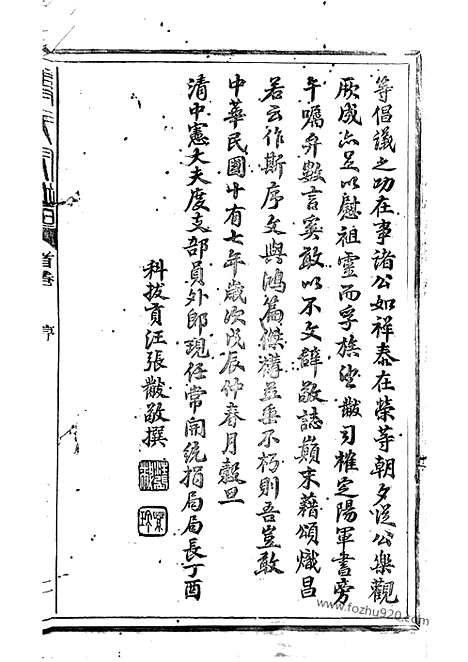 等倡議之功在事諸公如祥泰在榮等朝夕從公樂觀
厥成亦足以慰祖靈而孚族望黻司榷定陽軍書旁
午囑弁數言奚敢以不文辭敬誌顛末藉頌熾昌
若云作斯序文與鴻篇傑構並垂不朽則吾豈敢
中華民國十有七年歲次戊辰仲春月穀旦
清中憲大夫度支部員外郎現任常開統捐局局長丁酉
科拔貢汪張黻敬撰
首卷
序
www.fozhu920.com